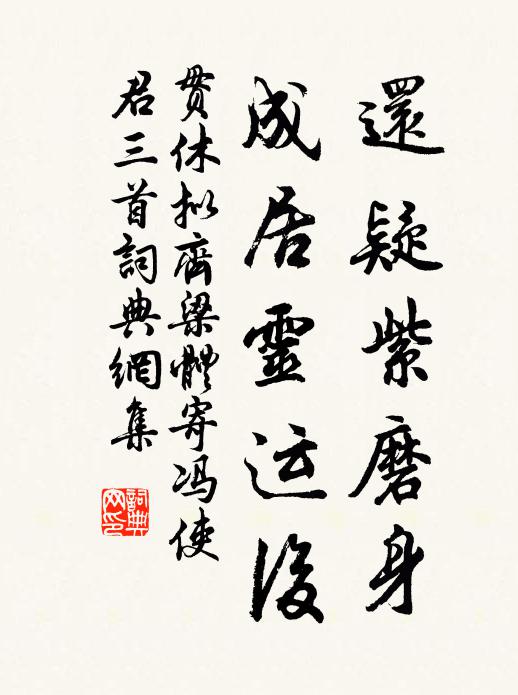 還疑紫磨身
成居靈运後
贯休拟齊梁體寄冯使
君三首詞典網集
詞典网印